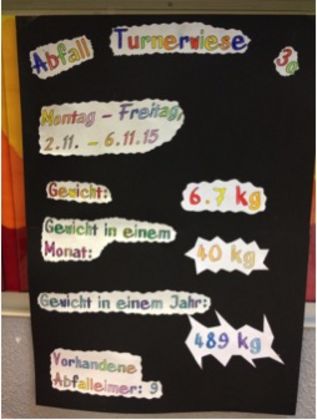 Abfall Turnerwiese 3c
Montag – Freitag,
2.11. – 6.11.15
Gewicht: 6.7 kg
Gewicht in einem
Monat: 40 kg
Gewicht in einem Jahr:
489 kg
Vorhandene
Abfalleimer: 9